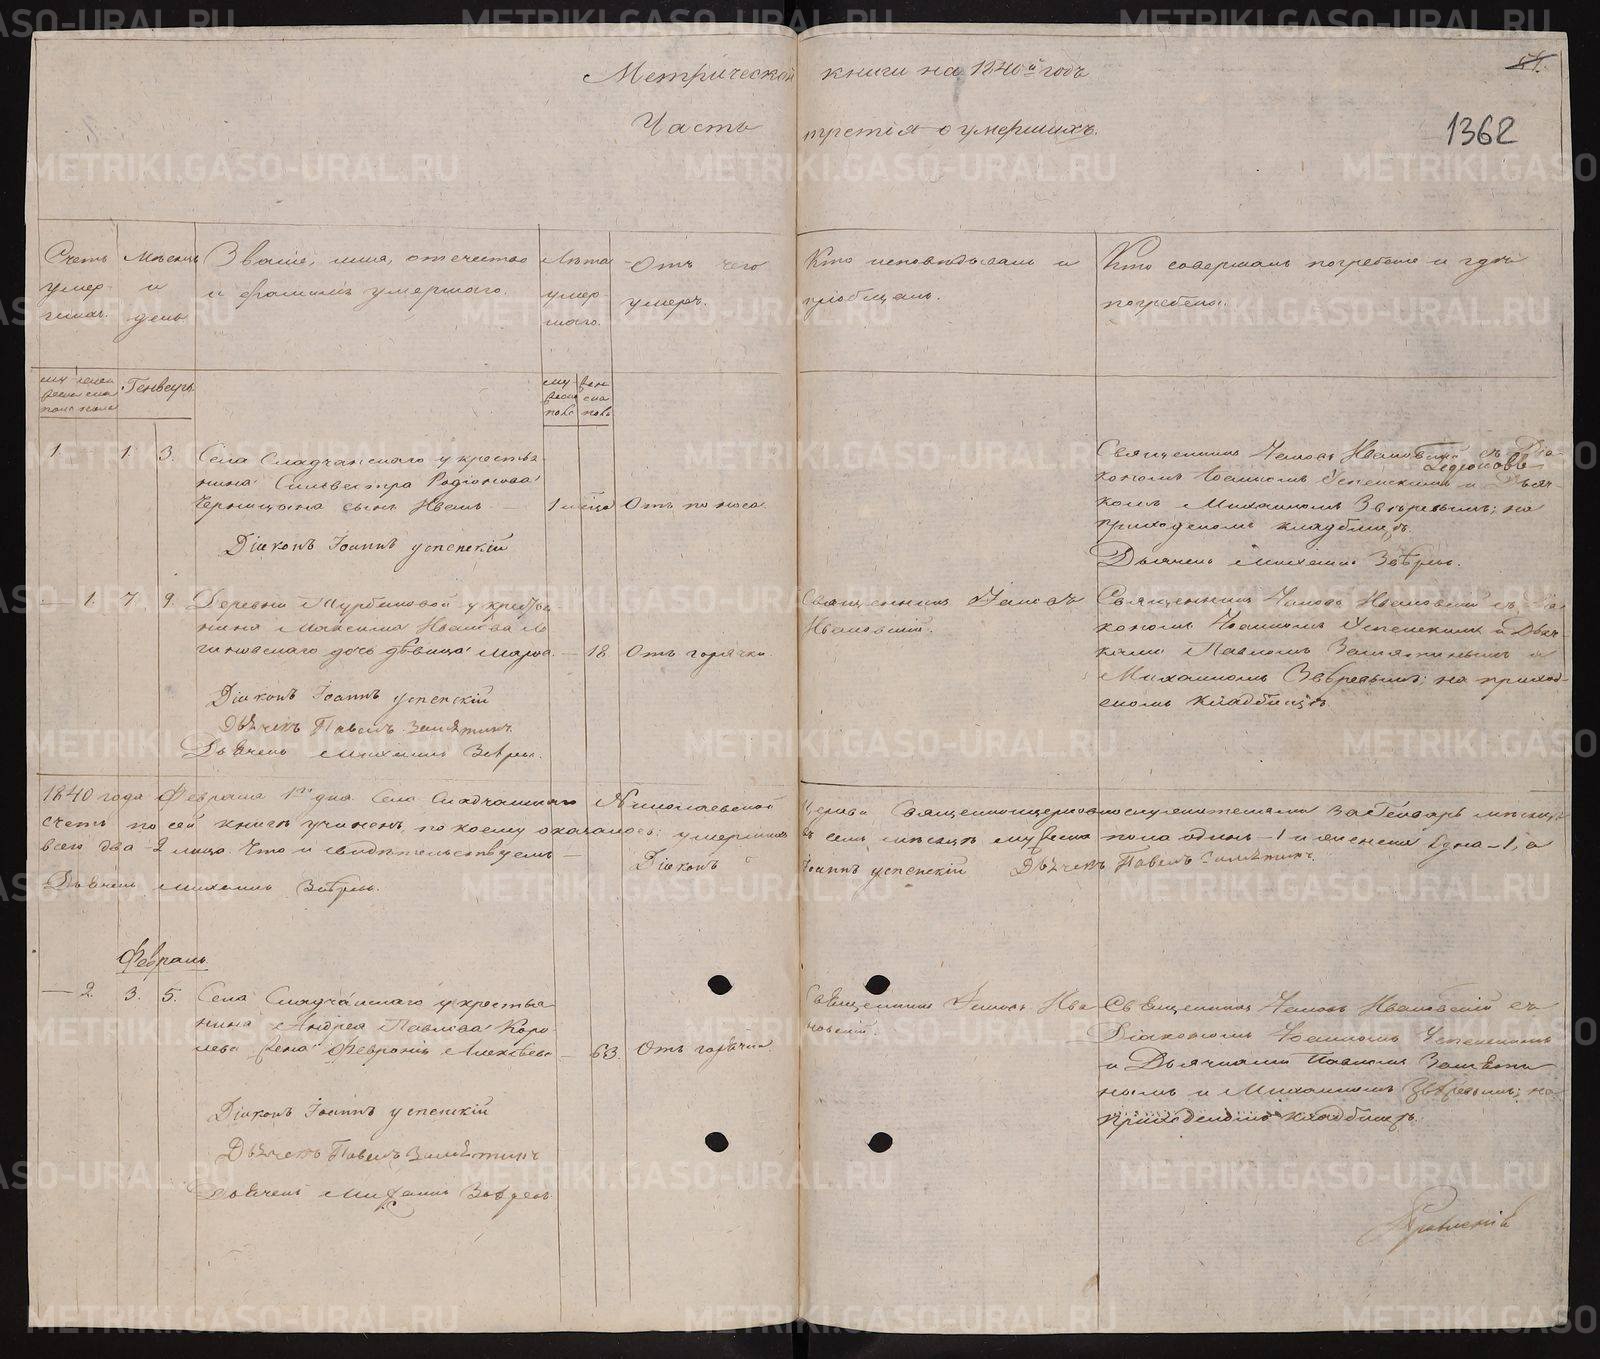 Метрической книги на 1840й годъ
Часть третія о умершихъ.
1362
Счетъ умер- шихъ.
Мѣсяцъ и день
Званіе, имя, отечество
и фамилія умершаго.
Лѣта умер- шаго.
Отъ чего
умеръ.
Кто исповѣдывалъ и
пріобщалъ.
Кто совершалъ погребеніе и гдѣ
погребены.
Генварь
1. 1 3.
Села Сладчанскаго у крестья-
нина Сильвестра Родіонова
сынъ Иванъ
1 Отъ поноса.
Діаконъ Іоаннъ успенскій
Священникъ Іаковъ Ивановскій съ Діа-
кономъ Іоанномъ Успенскимъ и Дьяч-
комъ Михаиломъ Звѣревымъ; на
приходскомъ кладбищѣ.
Дьячекъ Михаилъ Звѣревъ.
— 1. 7. 9. Деревни у крестья-
нина Максима Иванова
дочь дѣвица Марѳа. — 18 Отъ горячки.
Священникъ Іаковъ
Ивановскій.
Священникъ Іаковъ Ивановскій съ Діа-
кономъ Іоанномъ Успенскимъ и Дьяч-
ками Павломъ Замятинымъ и
Михаиломъ Звѣревымъ; на приход-
скомъ кладбищѣ.
Діаконъ Іоаннъ успенскій
Дьячекъ Павелъ Замятинъ.
Дьячекъ Михаилъ Звѣревъ.
1840 года Февраля 1го дня Села Сладчанскаго Николаевской церкви Священноцерковнослужителями за Генварь мѣсяцъ
счетъ по сей книгѣ учиненъ, по коему оказалось: умершихъ въ семъ мѣсяцѣ мужеска пола одинъ - 1 и женска одна - 1, а
всего два - 2 лица. Что и свидѣтельствуемъ — Діаконъ Іоаннъ успенскій Дьячекъ Павелъ Замятинъ.
Дьячекъ Михаилъ Звѣревъ.
Февраль.
— 2. 3. 5. Села Сладчанскаго у крестья-
нина Андрея Павлова Коро-
лева жена Февронія Алексѣева — 63. Отъ горячки.
Священникъ Іаковъ Ива-
новскій.
Священникъ Іаковъ Ивановскій съ
Діакономъ Іоанномъ Успенскимъ
и Дьячками Павломъ Замяти-
нымъ и Михаиломъ Звѣревымъ; на
приходскомъ кладбищѣ.
Діаконъ Іоаннъ успенскій
Дьячекъ Павелъ Замятинъ
Дьячекъ Михаилъ Звѣревъ